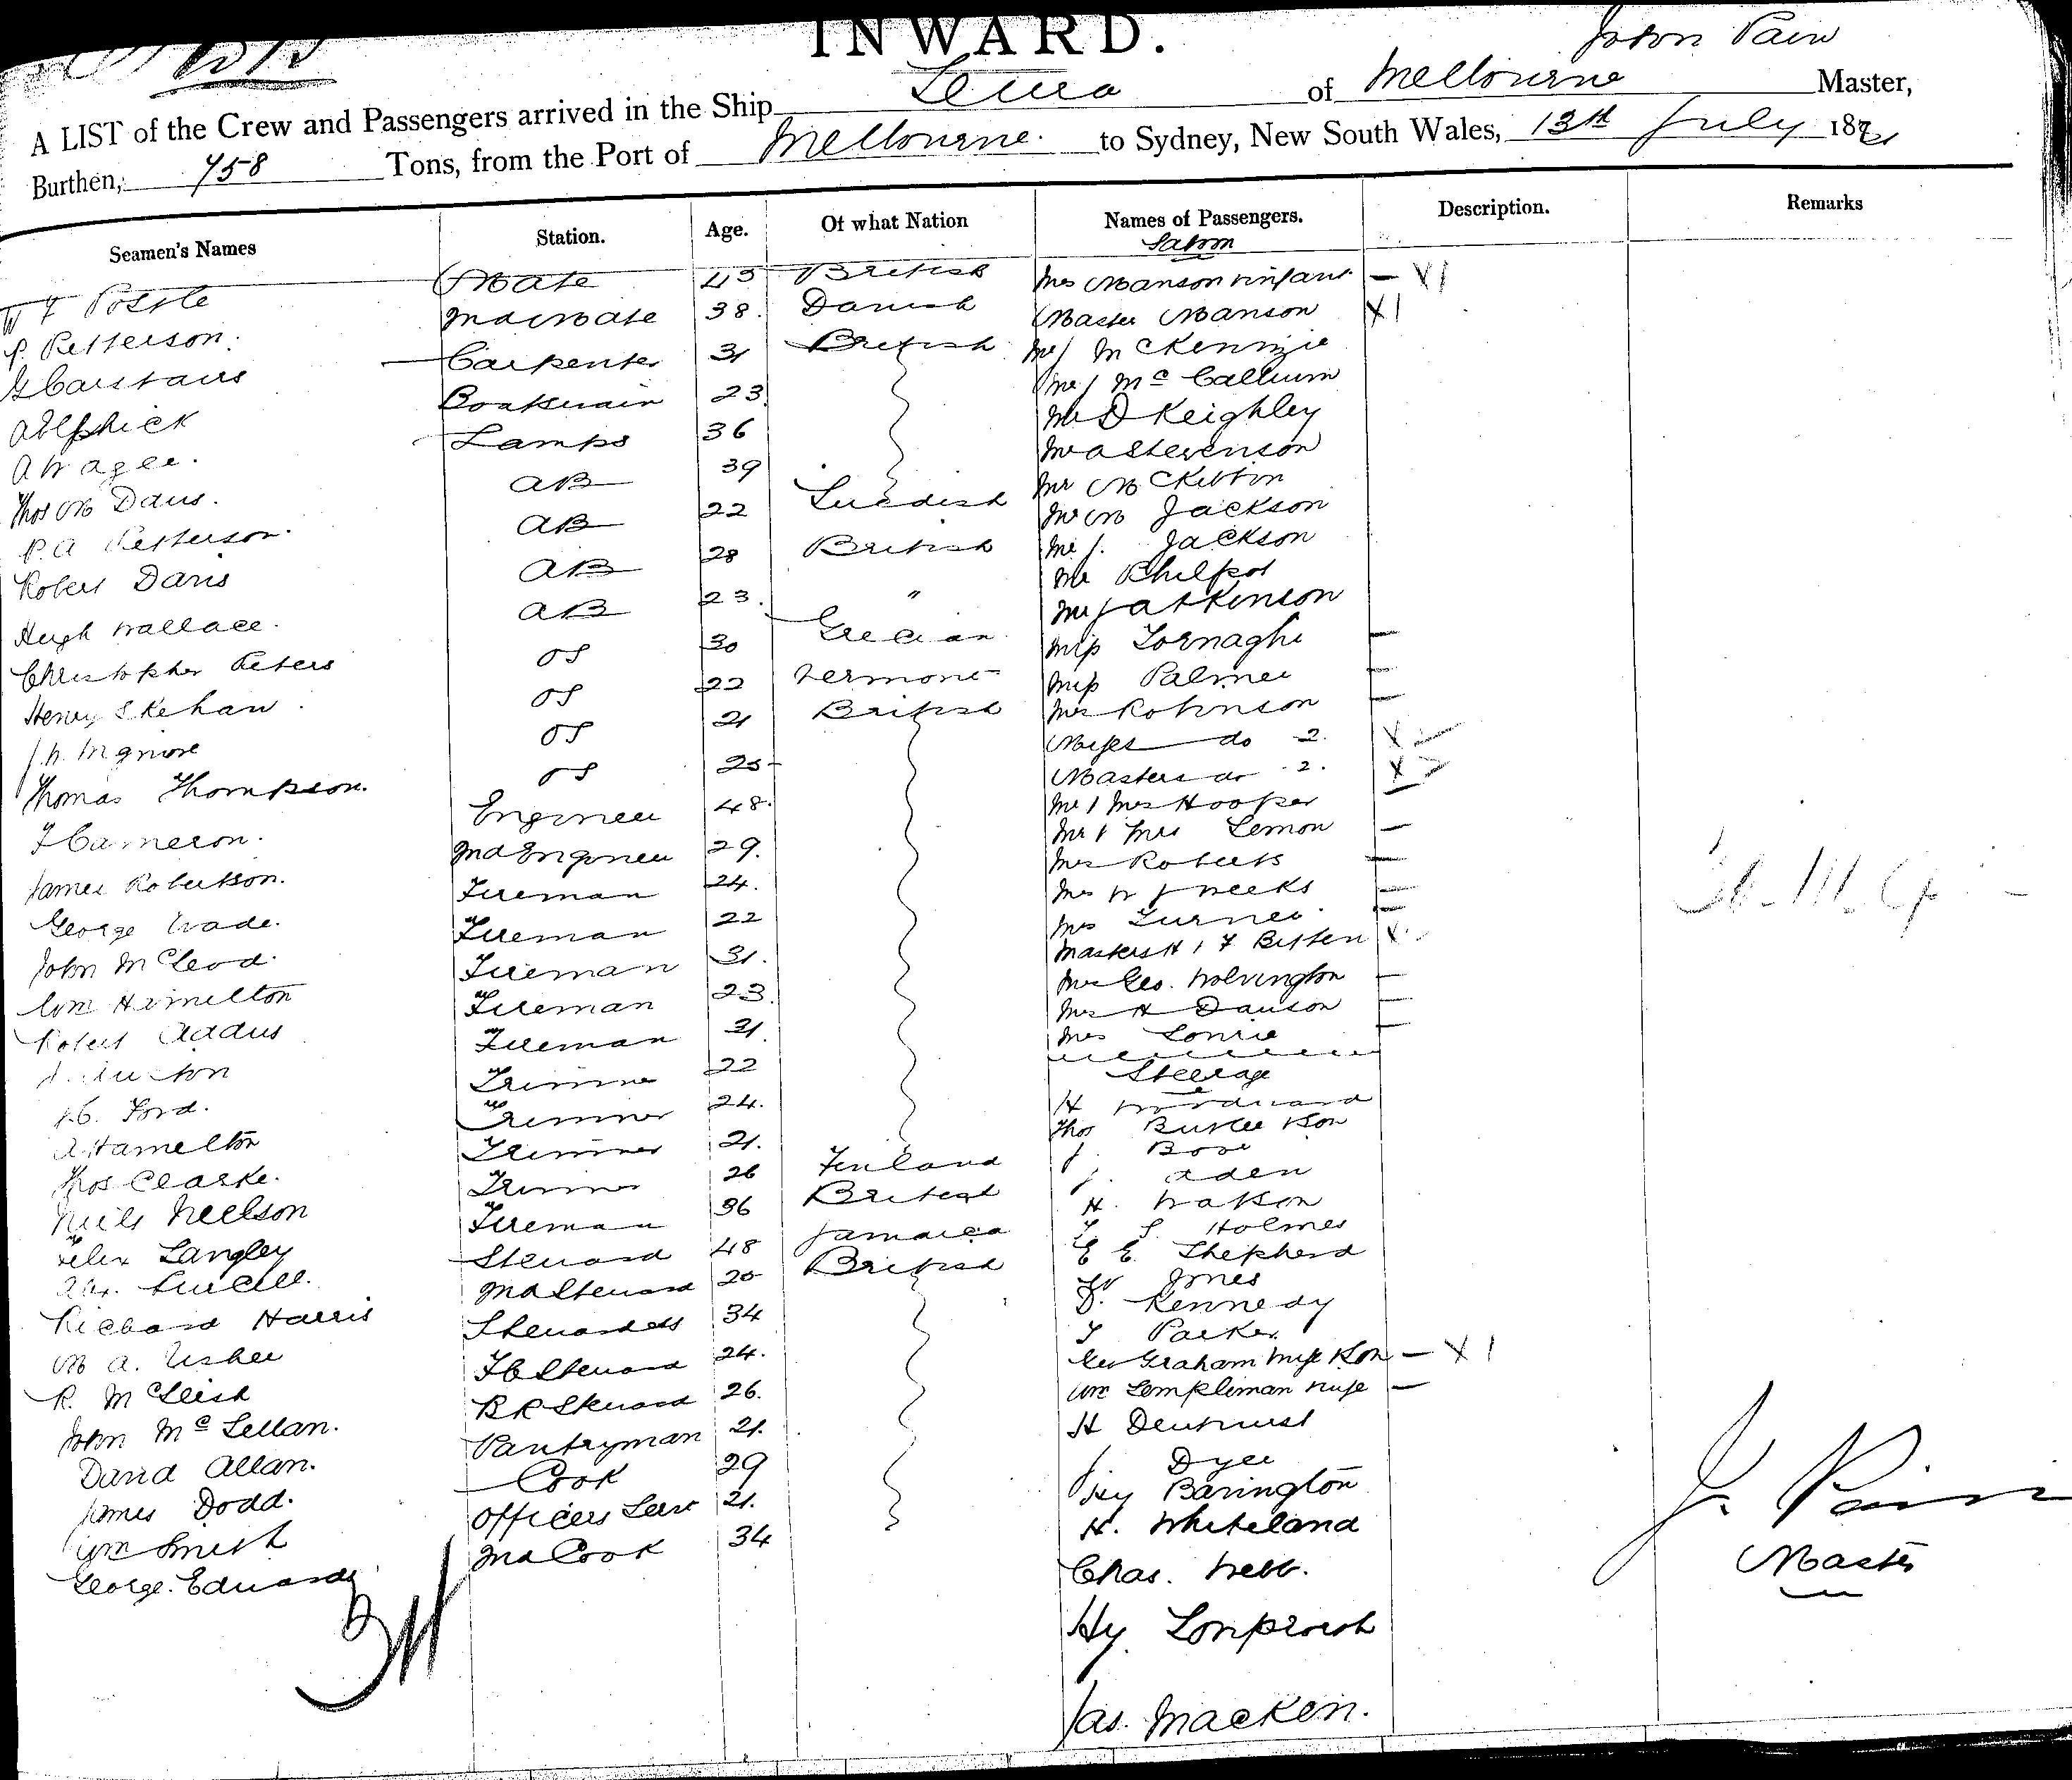 INWARD.
John Pain
A LIST of the Crew and Passengers arrived in the Ship of Melbourne Master,
Burthen, 758 Tons, from the Port of Melbourne. to Sydney, New South Wales, 13th July 187
Seamen's Names Station. Age. Of what Nation Names of Passengers. Description. Remarks
Saloon
Mate 43 British Mrs Manson & infant — X1
P. Petterson. 2nd Mate 38. Danish Master Manson X1
G Carstairs Carpenter 31 British Mr J McKenzie
A Elphick Boatswain 23. Mr J McCallum
A Wagee. Lamps 36 Mr D Keighley
Thos M Davis. AB 39 Mr A Stevenson
P. A Petterson. AB 22 Swedish Mr McKibbin
Robert Davis AB 28 British Mr M Jackson
Hugh Wallace. AB 23. " Mr J. Jackson
Christopher Peters OS 30 Grecian Mr Philpot
Henry Skehan. OS 22 Mr J Atkinson
OS 21 British Miss Tornaghi —
Thomas Thompson. OS 25 Miss Palmer —
J Cameron. Engineer 48. Mrs Robinson —
James Robertson. 2nd Engineer 29. Misses do 2. X
George Wade. Fireman 24. Masters do 2. X
John McLeod. Fireman 22 Mr & Mrs Hooper —
Wm Hamilton Fireman 31. Mr & Mrs Lemon —
Robert Addus Fireman 23. Mrs Roberts —
Fireman 31 Mrs W J Weeks —
J.C. Ford. Trimmer 22 Mrs Turner —
A Hamelton Trimmer 24. Masters H & F X
Thos Clarke. Trimmer 21. Mrs Geo. Wolvington —
Niels Neelson Trimmer 26 Finland Mrs H Dawson —
Felix Langley Fireman 36 British Mrs Lonie —
Steward 48 Jamaica Steerage
Richard Harris 2nd Steward 25 British H Woodward
M A. Usher Stewardess 34 Thos & Son
R. McLeish F C Steward 24. J.
John McLellan. B R Steward 26. J. Aden
David Allan. Pantryman 21. H. Watson
James Dodd. Cook 29 T. S. Holmes
Wm Smith Officers Servt 21. E E. Shepherd
George. Edwards 2nd Cook 34 W Jones
D. Kennedy
J Parker
Geo Graham wife & son — X1
Wm Templiman wife —
H
J. Dyer
Hy Barington
H. Whiteland
Chas. Webb.
Hy
Jas. Macken.
J. Pain
Master